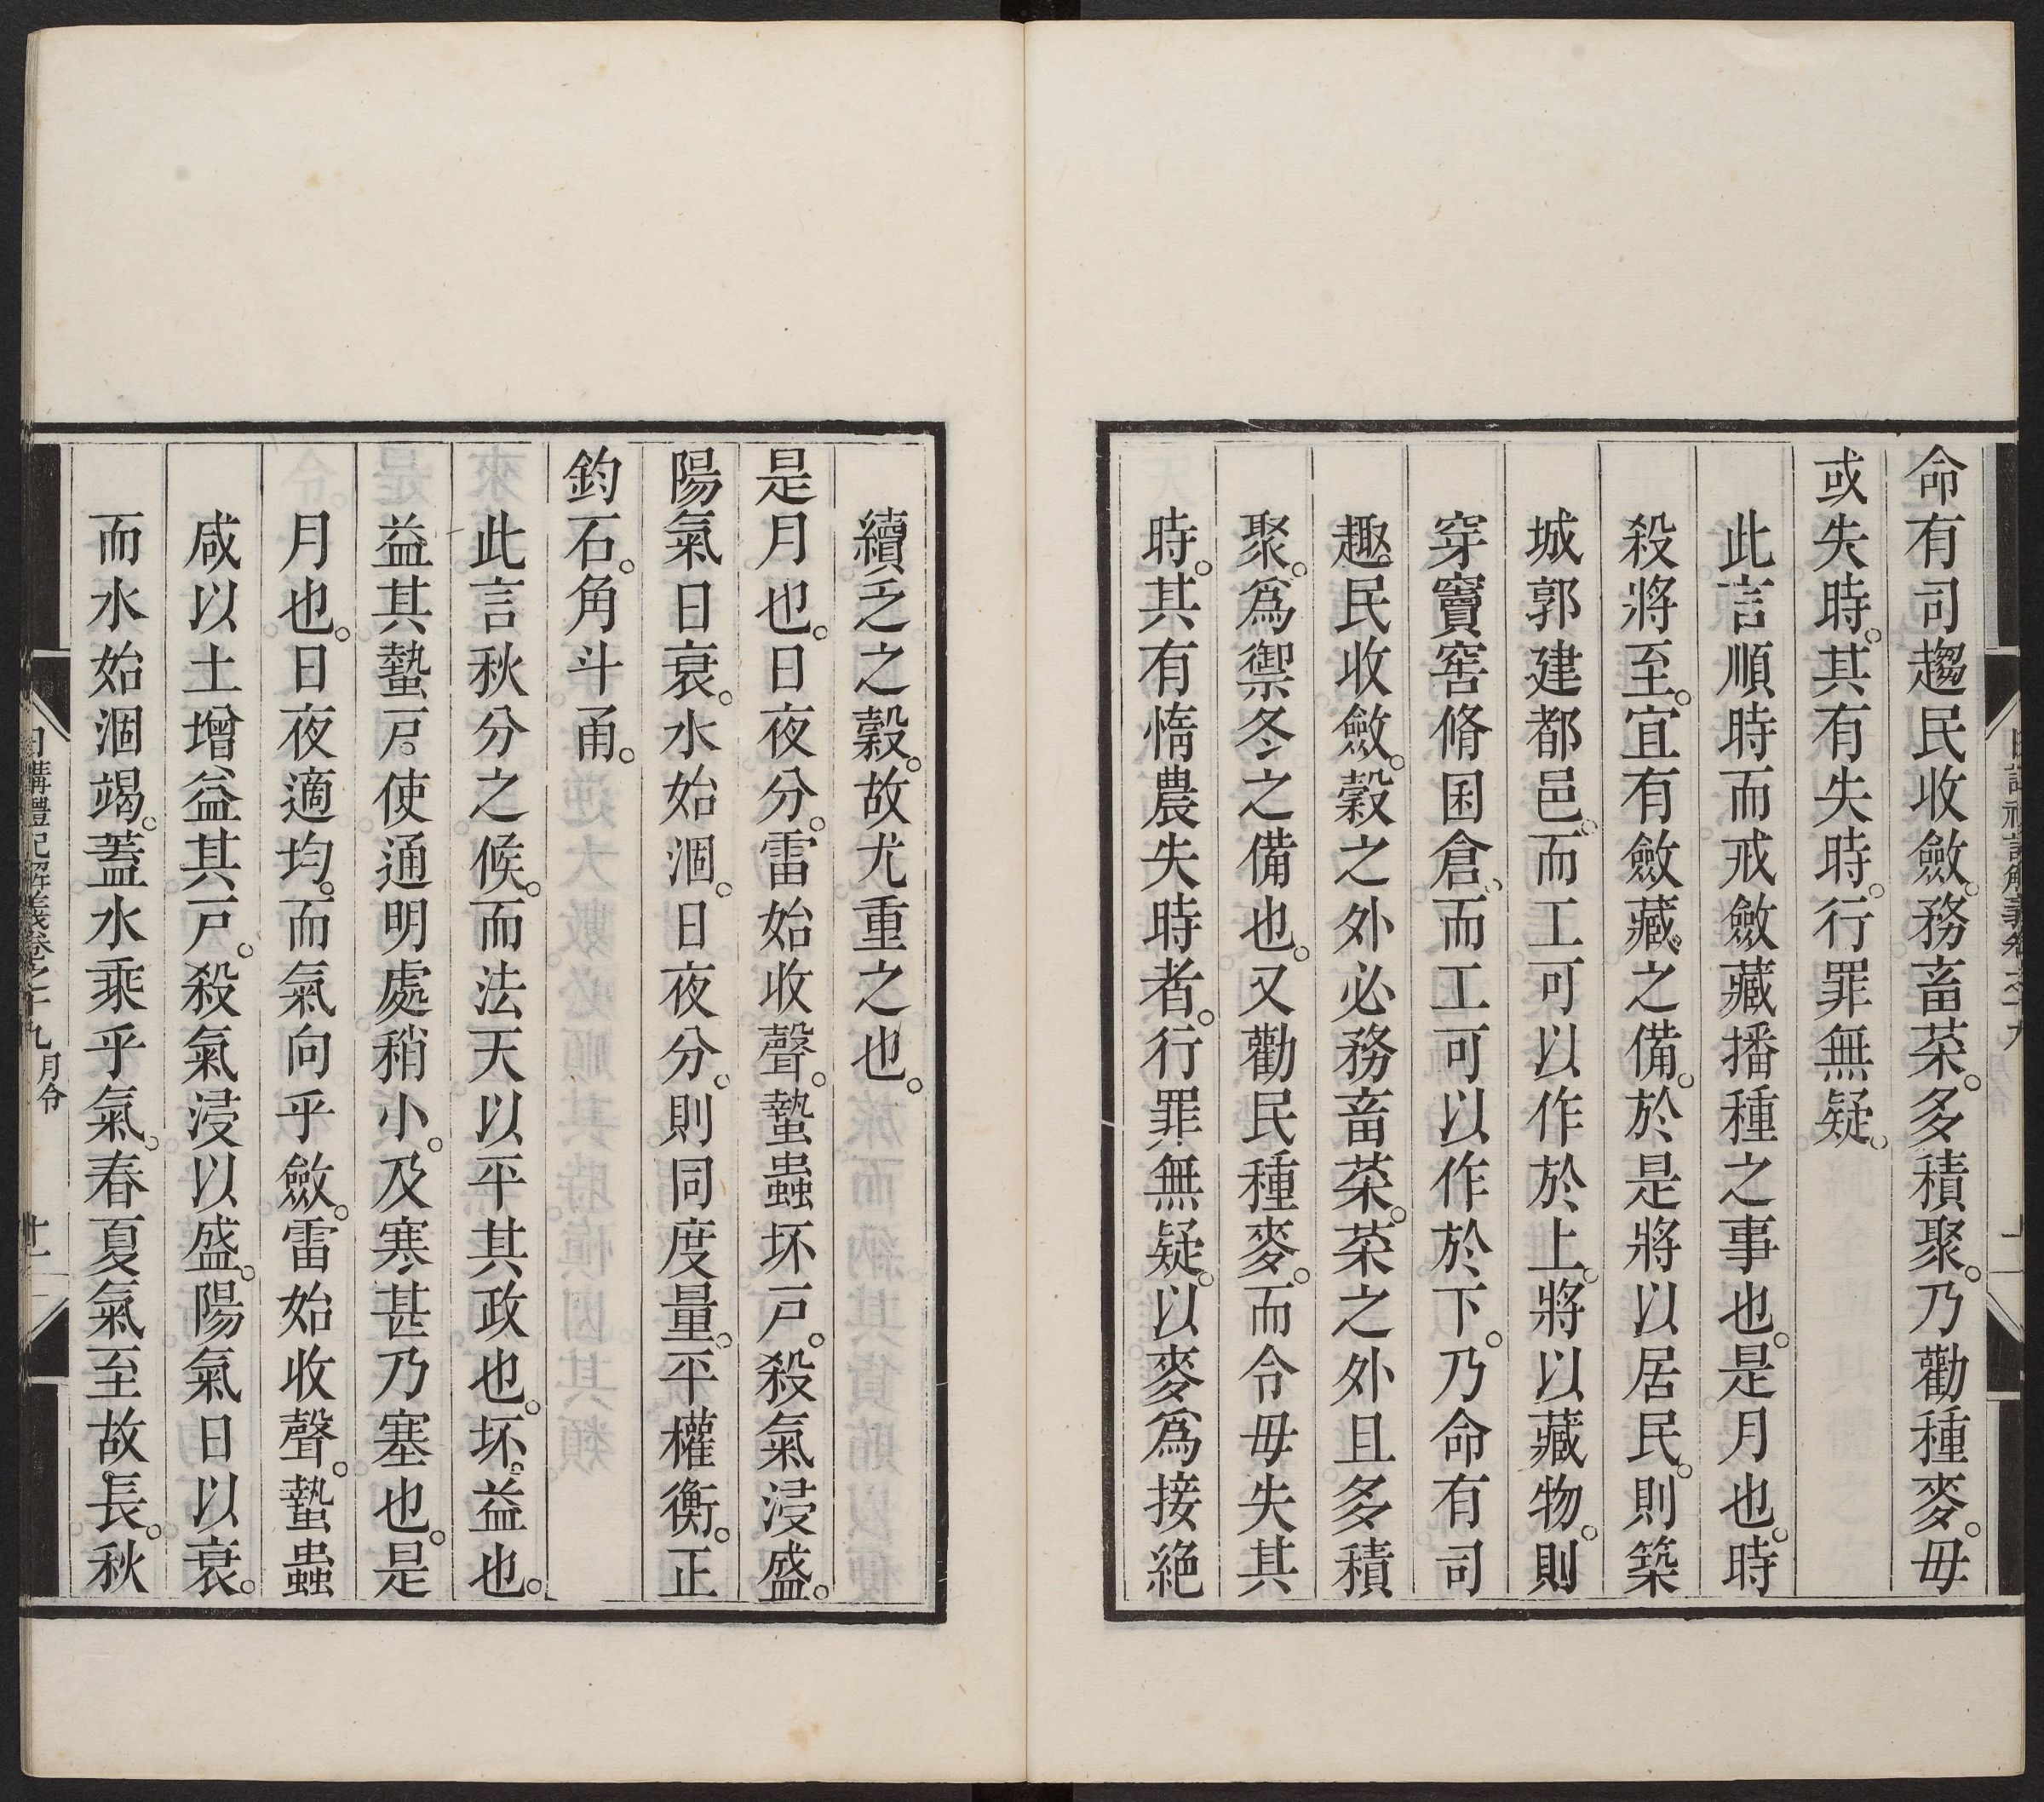 命有司趨民收斂。務畜菜。多積聚。乃勸種麥。毋
或失時。其有失時。行罪無疑。
此言順時而戒斂藏播種之事也。是月也。時
殺將至。宜有斂藏之備。於是將以居民。則築
城郭建都邑。而工可以作於上。將以藏物。則
穿竇窖脩囷倉。而工可以作於下。乃命有司
趣民收斂。穀之外必務畜菜。菜之外且多積
聚。爲禦冬之備也。又勸民種麥。而令毋失其
時。其有惰農失時者。行罪無疑。以麥爲接絶
續乏之穀。故尤重之也。
是月也。日夜分。雷始收聲。蟄蟲坏戸。殺氣浸盛。
陽氣日衰。水始涸。日夜分。則同度量。平權衡。正
鈞石。角斗甬。
此言秋分之候。而法天以平其政也。坏。益也。
益其蟄戸。使通明處稍小。及寒甚乃塞也。是
月也。日夜適均。而氣向乎斂。雷始收聲。蟄蟲
咸以土增益其戸。殺氣浸以盛。陽氣日以衰。
而水始涸竭。蓋水乘乎氣。春夏氣至故長。秋
日講禮記解義卷之二十九 月令 十一